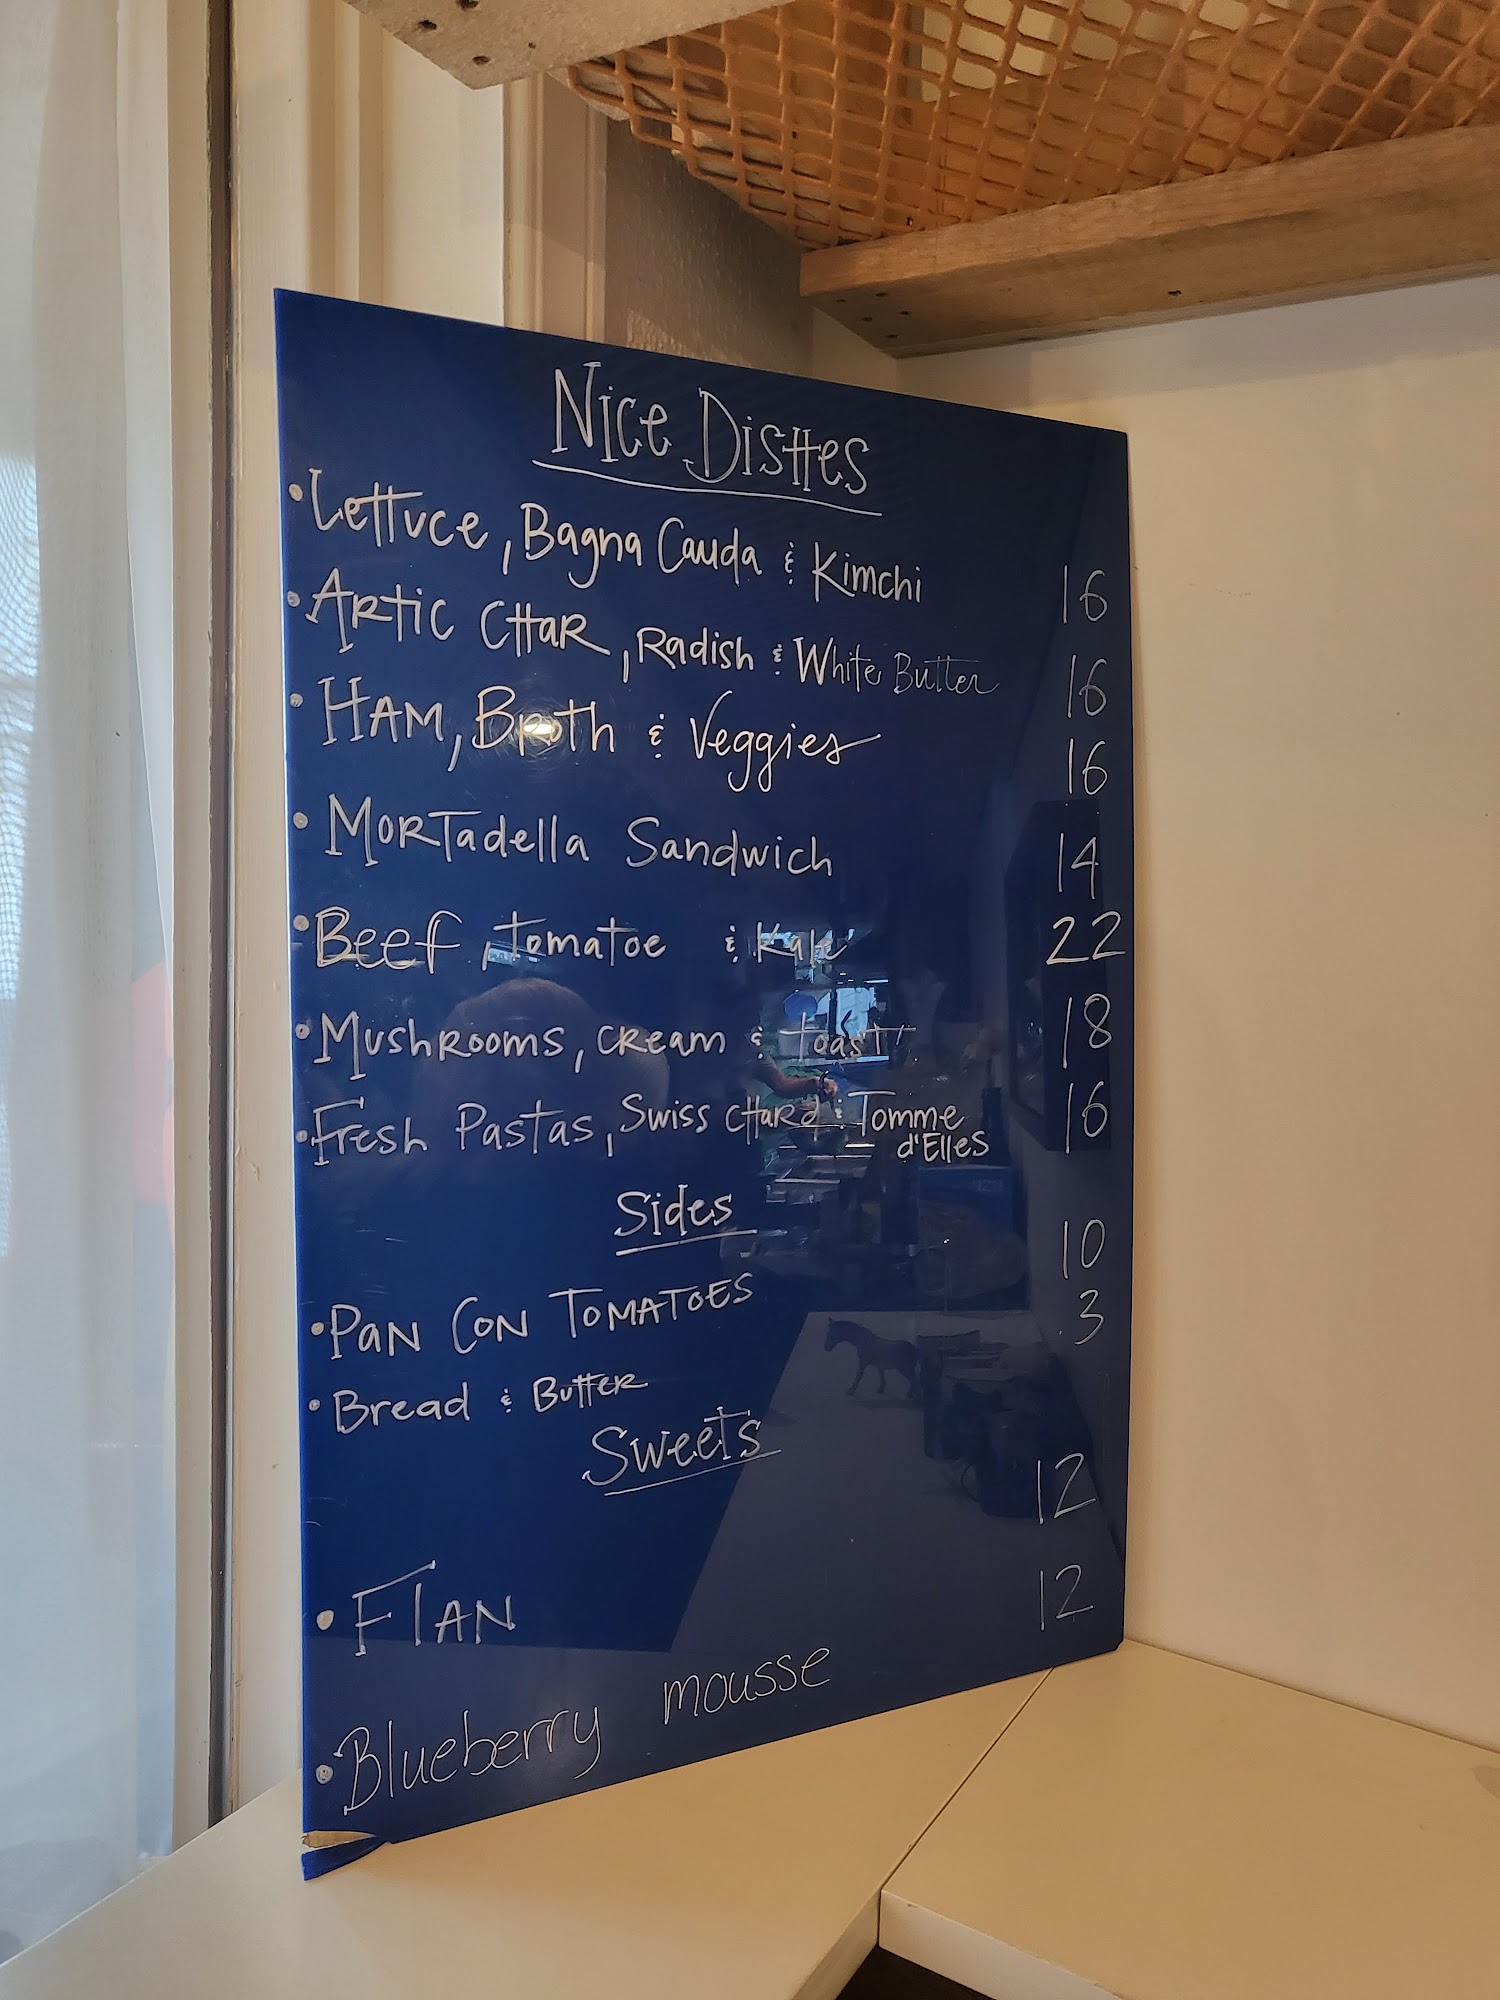 Nice Dishes
• Lettuce, Bagna Cauda & Kimchi 16
• Artic Char, Radish & White Butter 16
• Ham, Broth & Veggies 16
• Mortadella Sandwich 14
• Beef, tomatoe & Kale 22
• Mushrooms, cream & toast 18
• Fresh Pastas, Swiss Chard & Tomme d'Elles 16
Sides
• Pan Con Tomatoes 10
• Bread & Butter 3
Sweets
• Flan 12
• Blueberry mousse 12